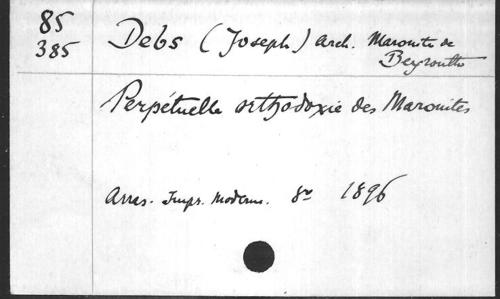 85
385
Debs (Joseph) Arch. Maronite de
Beyrouth
Perpétuelle orthodoxie des Maronites
Arras. Impr. Moderne. 8º 1896